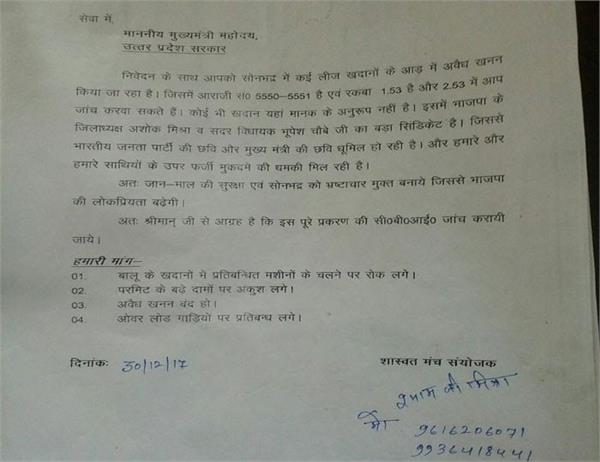 सेवा में,
माननीय मुख्यमंत्री महोदय,
उत्तर प्रदेश सरकार
निवेदन के साथ आपको सोनभद्र में कई लीज खदानों के आड़ में अवैध खनन
किया जा रहा है। जिसमें आराजी सं0 5550–5551 है एवं रकबा 1.53 है और 2.53 में आप
जांच करवा सकते हैं। कोई भी खदान यहां मानक के अनुरूप नहीं है। इसमें भाजपा के
जिलाध्यक्ष अशोक मिश्रा व सदर विधायक भूपेश चौबे जी का बड़ा सिंडिकेट है। जिससे
भारतीय जनता पार्टी की छवि और मुख्य मंत्री की छवि धूमिल हो रही है। और हमारे और
हमारे साथियों के उपर फर्जी मुकदमे की धमकी मिल रही है।
अतः जान–माल की सुरक्षा एवं सोनभद्र को भ्रष्टाचार मुक्त बनाये जिससे भाजपा
की लोकप्रियता बढ़ेगी।
अतः श्रीमान् जी से आग्रह है कि इस पूरे प्रकरण की सी0बी0आई0 जांच करायी
जाये।
हमारी मांग–
01. बालू के खदानों में प्रतिबन्धित मशीनों के चलने पर रोक लगे।
02. परमिट के बढ़े दामों पर अंकुश लगे।
03. अवैध खनन बंद हो।
04. ओवर लोड गाड़ियों पर प्रतिबन्ध लगे।
दिनांकः 30/12/17 शास्वत मंच संयोजक
मो 9616206071
9936418441